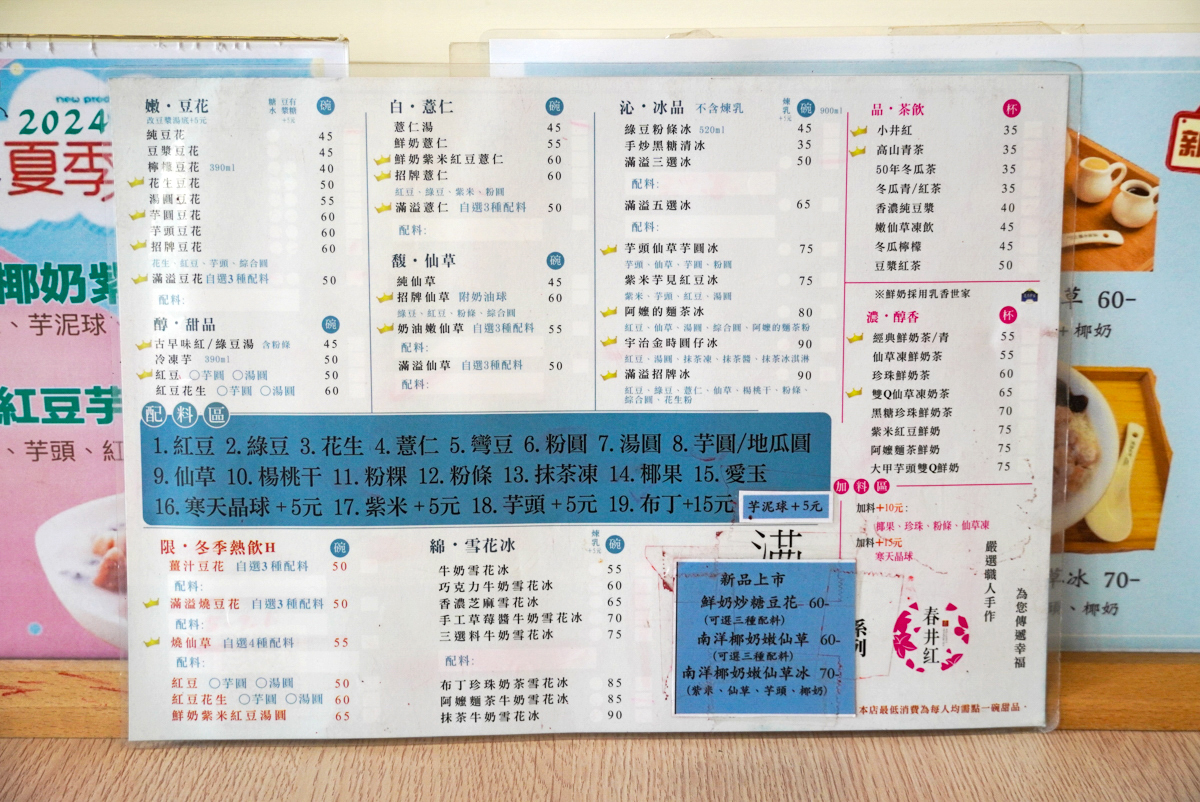 嫩・豆花 碗
純豆花 45
豆漿豆花 45
檸檬豆花 390ml 40
花生豆花 50
湯圓豆花 55
芋圓豆花 60
芋頭豆花 60
招牌豆花 60
花生、紅豆、芋頭、綜合圓
滿溢豆花 自選3種配料 50
配料:
醇・甜品 碗
古早味紅/綠豆湯 含粉條 45
冷凍芋 390ml 50
紅豆 ○芋圓 ○湯圓 50
紅豆花生 ○芋圓 ○湯圓 60
白・薏仁 碗
薏仁湯 45
鮮奶薏仁 55
鮮奶紫米紅豆薏仁 60
招牌薏仁 60
紅豆、綠豆、紫米、粉圓
滿溢薏仁 自選3種配料 50
配料:
馥・仙草 碗
純仙草 45
招牌仙草 附奶油球 60
綠豆、紅豆、粉條、綜合圓
奶油嫩仙草 自選3種配料 55
配料:
滿溢仙草 自選3種配料 50
配料:
沁・冰品 不含煉乳 煉乳 碗 900ml
綠豆粉條冰 520ml 45
手炒黑糖清冰 35
滿溢三選冰 50
配料:
滿溢五選冰 65
配料:
芋頭仙草芋圓冰 75
芋頭、仙草、芋圓、粉圓
紫米芋見紅豆冰 75
紫米、芋頭、紅豆、湯圓
阿嬤的麵茶冰 80
紅豆、仙草、湯圓、綜合圓、阿嬤的麵茶粉
宇治金時圓仔冰 90
紅豆、湯圓、抹茶凍、抹茶醬、抹茶冰淇淋
滿溢招牌冰 90
紅豆、綠豆、薏仁、仙草、楊桃干、粉條、
綜合圓、花生粉
品・茶飲 杯
小井紅 35
高山青茶 35
50年冬瓜茶 35
冬瓜青/紅茶 35
香濃純豆漿 40
嫩仙草凍飲 45
冬瓜檸檬 45
豆漿紅茶 50
※鮮奶採用乳香世家
濃・醇香 杯
經典鮮奶茶/青 55
仙草凍鮮奶茶 55
珍珠鮮奶茶 60
雙Q仙草凍奶茶 65
黑糖珍珠鮮奶茶 70
紫米紅豆鮮奶 75
阿嬤麵茶鮮奶 75
大甲芋頭雙Q鮮奶 75
加料區
加料+10元:
椰果、珍珠、粉條、仙草凍
加料+15元
寒天晶球
配料區
1.紅豆 2.綠豆 3.花生 4.薏仁 5.彎豆 6.粉圓 7.湯圓 8.芋圓/地瓜圓
9.仙草 10.楊桃干 11.粉粿 12.粉條 13.抹茶凍 14.椰果 15.愛玉
16.寒天晶球+5元 17.紫米+5元 18.芋頭+5元 19.布丁+15元
芋泥球+5元
限・冬季熱飲H 碗
薑汁豆花 自選3種配料 50
配料:
滿溢燒豆花 自選3種配料 50
配料:
燒仙草 自選4種配料 55
配料:
紅豆 ○芋圓 ○湯圓 50
紅豆花生 ○芋圓 ○湯圓 60
鮮奶紫米紅豆湯圓 65
綿・雪花冰 煉乳 碗
牛奶雪花冰 55
巧克力牛奶雪花冰 60
香濃芝麻雪花冰 65
手工草莓醬牛奶雪花冰 70
三選料牛奶雪花冰 75
配料:
布丁珍珠奶茶雪花冰 85
阿嬤麵茶牛奶雪花冰 85
抹茶牛奶雪花冰 90
滿
系列
新品上市
鮮奶炒糖豆花 60-
(可選三種配料)
南洋椰奶嫩仙草 60-
(可選三種配料)
南洋椰奶嫩仙草冰 70-
(紫米、仙草、芋頭、椰奶)
嚴選職人手作
為您傳遞幸福
春井红
本店最低消費為每人均需點一碗甜品。
2024
夏季
椰奶紫
、芋泥球
紅豆芋
、芋頭、紅
新
草 60-
+椰奶
草冰 70-
頭、椰奶